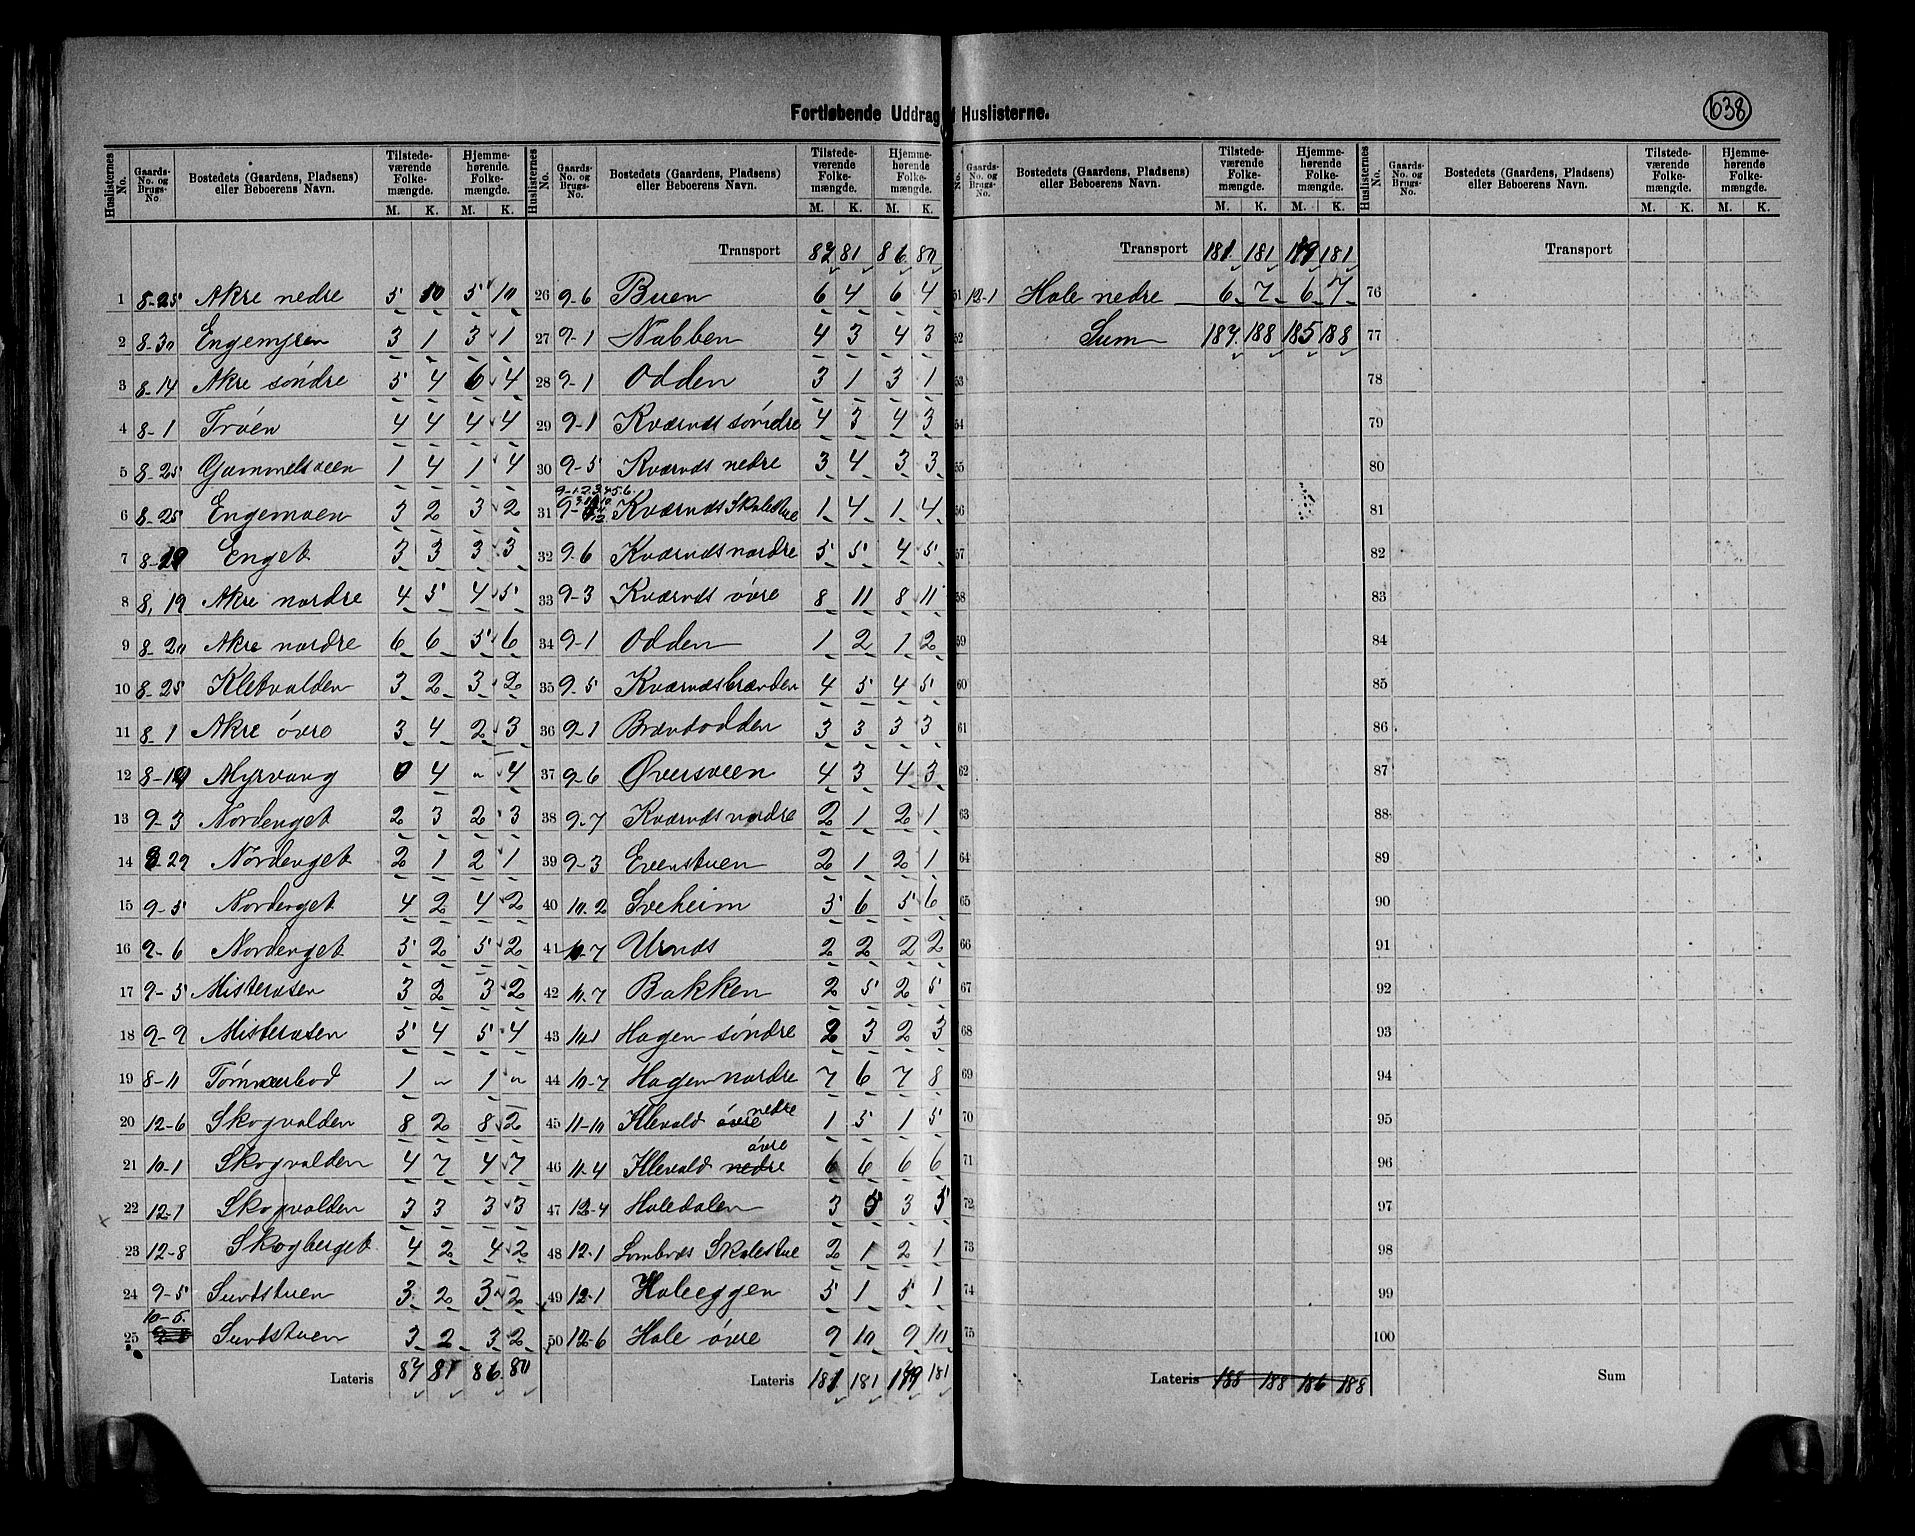 Fortløbende Uddrag af Huslisterne.
638
Huslisternes No. Gaards-No. og Brugs-No. Bostedets (Gaardens, Pladsens) eller Beboerens Navn. Tilstedeværende Folkemængde. M. K. Hjemmehørende Folkemængde. M. K.
1 8-25 Akre nedre 5 10 5 10
2 8-30 Engemyren 3 1 3 1
3 8-14 Akre søndre 5 4 6 4
4 8-1 Trøen 4 4 4 4
5 8-25 Gammelsveen 1 4 1 4
6 8-25 Engemoen 3 2 3 2
7 8-19 Enget 3 3 3 3
8 8, 19 Akre nordre 4 5 4 5
9 8-20 Akre nordre 6 6 5 6
10 8-25 Kletvolden 3 2 3 2
11 8-1 Akre øvre 3 4 2 3
12 8-19 Myrvang 0 4 " 4
13 9-3 Nordenget 2 3 2 3
14 8-29 Nordenget 2 1 2 1
15 9-5 Nordenget 4 2 4 2
16 9-6 Nordenget 5 2 5 2
17 9-5 Misterosen 3 2 3 2
18 9-9 Misterosen 5 4 5 4
19 8-11 Tømmerbod 1 " 1 "
20 12-6 Skogvolden 8 2 8 2
21 10-1 Skogvolden 4 7 4 7
22 12-1 Skogvolden 3 3 3 3
23 12-8 Skogberget 4 2 4 2
24 9-5 Sundstuen 3 2 3 2
25 10-5. Sundstuen 3 2 3 2
Lateris 87 81 86 80
Huslisternes No. Gaards-No. og Brugs-No. Bostedets (Gaardens, Pladsens) eller Beboerens Navn. Tilstedeværende Folkemængde. M. K. Hjemmehørende Folkemængde. M. K.
Transport 87 81 86 80
26 9-6 Buen 6 4 6 4
27 9-1 Nabben 4 3 4 3
28 9-1 Odden 3 1 3 1
29 9-1 Kværnæs søndre 4 3 4 3
30 9-5 Kværnæs nedre 3 4 3 3
9-1.2.3.4.5.6
31 Kværnæs Skolestue 1 4 1 4
32 9-6 Kværnæs nordre 5 5 4 5
33 9-3 Kværnæs øvre 8 11 8 11
34 9-1 Odden 1 2 1 2
35 9-5 Kværnæsbrænden 4 5 4 5
36 9-1 Brændodden 3 3 3 3
37 9-6 Øversveen 4 3 4 3
38 9-7 Kværnæs nordre 2 1 2 1
39 9-3 Evenstuen 2 1 2 1
40 10-2 Sveheim 5 6 5 6
41 10-7 Urnæs 2 2 2 2
42 10-7 Bakken 2 5 2 5
43 10-1 Hagen søndre 2 3 2 3
44 10-7 Hagen nordre 7 6 7 8
45 11-10 Klevold øvre nedre 1 5 1 5
46 11-4 Klevold nedre øvre 6 6 6 6
47 12-4 Holedalen 3 5 3 5
48 12-1 Lombnæs Skolestue 2 1 2 1
49 12-1 Holeeggen 5 1 5 1
50 12-6 Hole øvre 9 10 9 10
Lateris 181 181 179 181
No. Gaards-No. og Brugs-No. Bostedets (Gaardens, Pladsens) eller Beboerens Navn. Tilstedeværende Folkemængde. M. K. Hjemmehørende Folkemængde. M. K.
Transport 181 181 179 181
51 12-1 Hole nedre 6 7 6 7
52 Sum 187 188 185 188
53
54
55
56
57
58
59
60
61
62
63
64
65
66
67
68
69
70
71
72
73
74
75
Lateris 188 188 186 188
Huslisternes No. Gaards-No. og Brugs-No. Bostedets (Gaardens, Pladsens) eller Beboerens Navn. Tilstedeværende Folkemængde. M. K. Hjemmehørende Folkemængde. M. K.
Transport
76
77
78
79
80
81
82
83
84
85
86
87
88
89
90
91
92
93
94
95
96
97
98
99
100
Sum